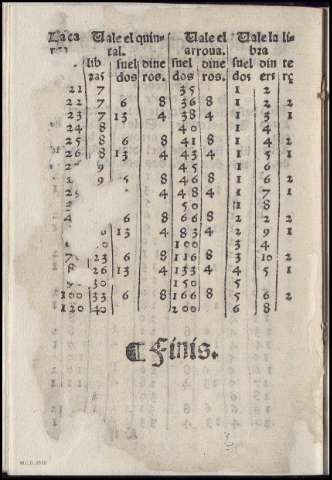 Laca Uale el quin- Uale el Uale la li-
tal. arroua. bra
lib suel dine suel dine suel din te
ras dos ros. dos ros. dos ers rç
21 7 35 1 2
22 7 6 8 36 8 1 2 2
23 7 13 4 38 4 1 3 1
24 8 40 1 4
25 8 6 8 41 8 1 4 2
26 8 13 4 43 4 1 5 1
9 45 1 6
9 8 46 8 1 6 2
4 48 4 1 7 1
50 1 8
4 6 8 66 8 2 2 2
13 4 83 4 2 9 1
30 100 3 4
7 23 6 8 116 8 3 10 2
8 26 13 4 133 4 4 5 1
30 150 5
100 33 6 8 166 8 5 6 2
120 40 200 6 8
Finis.